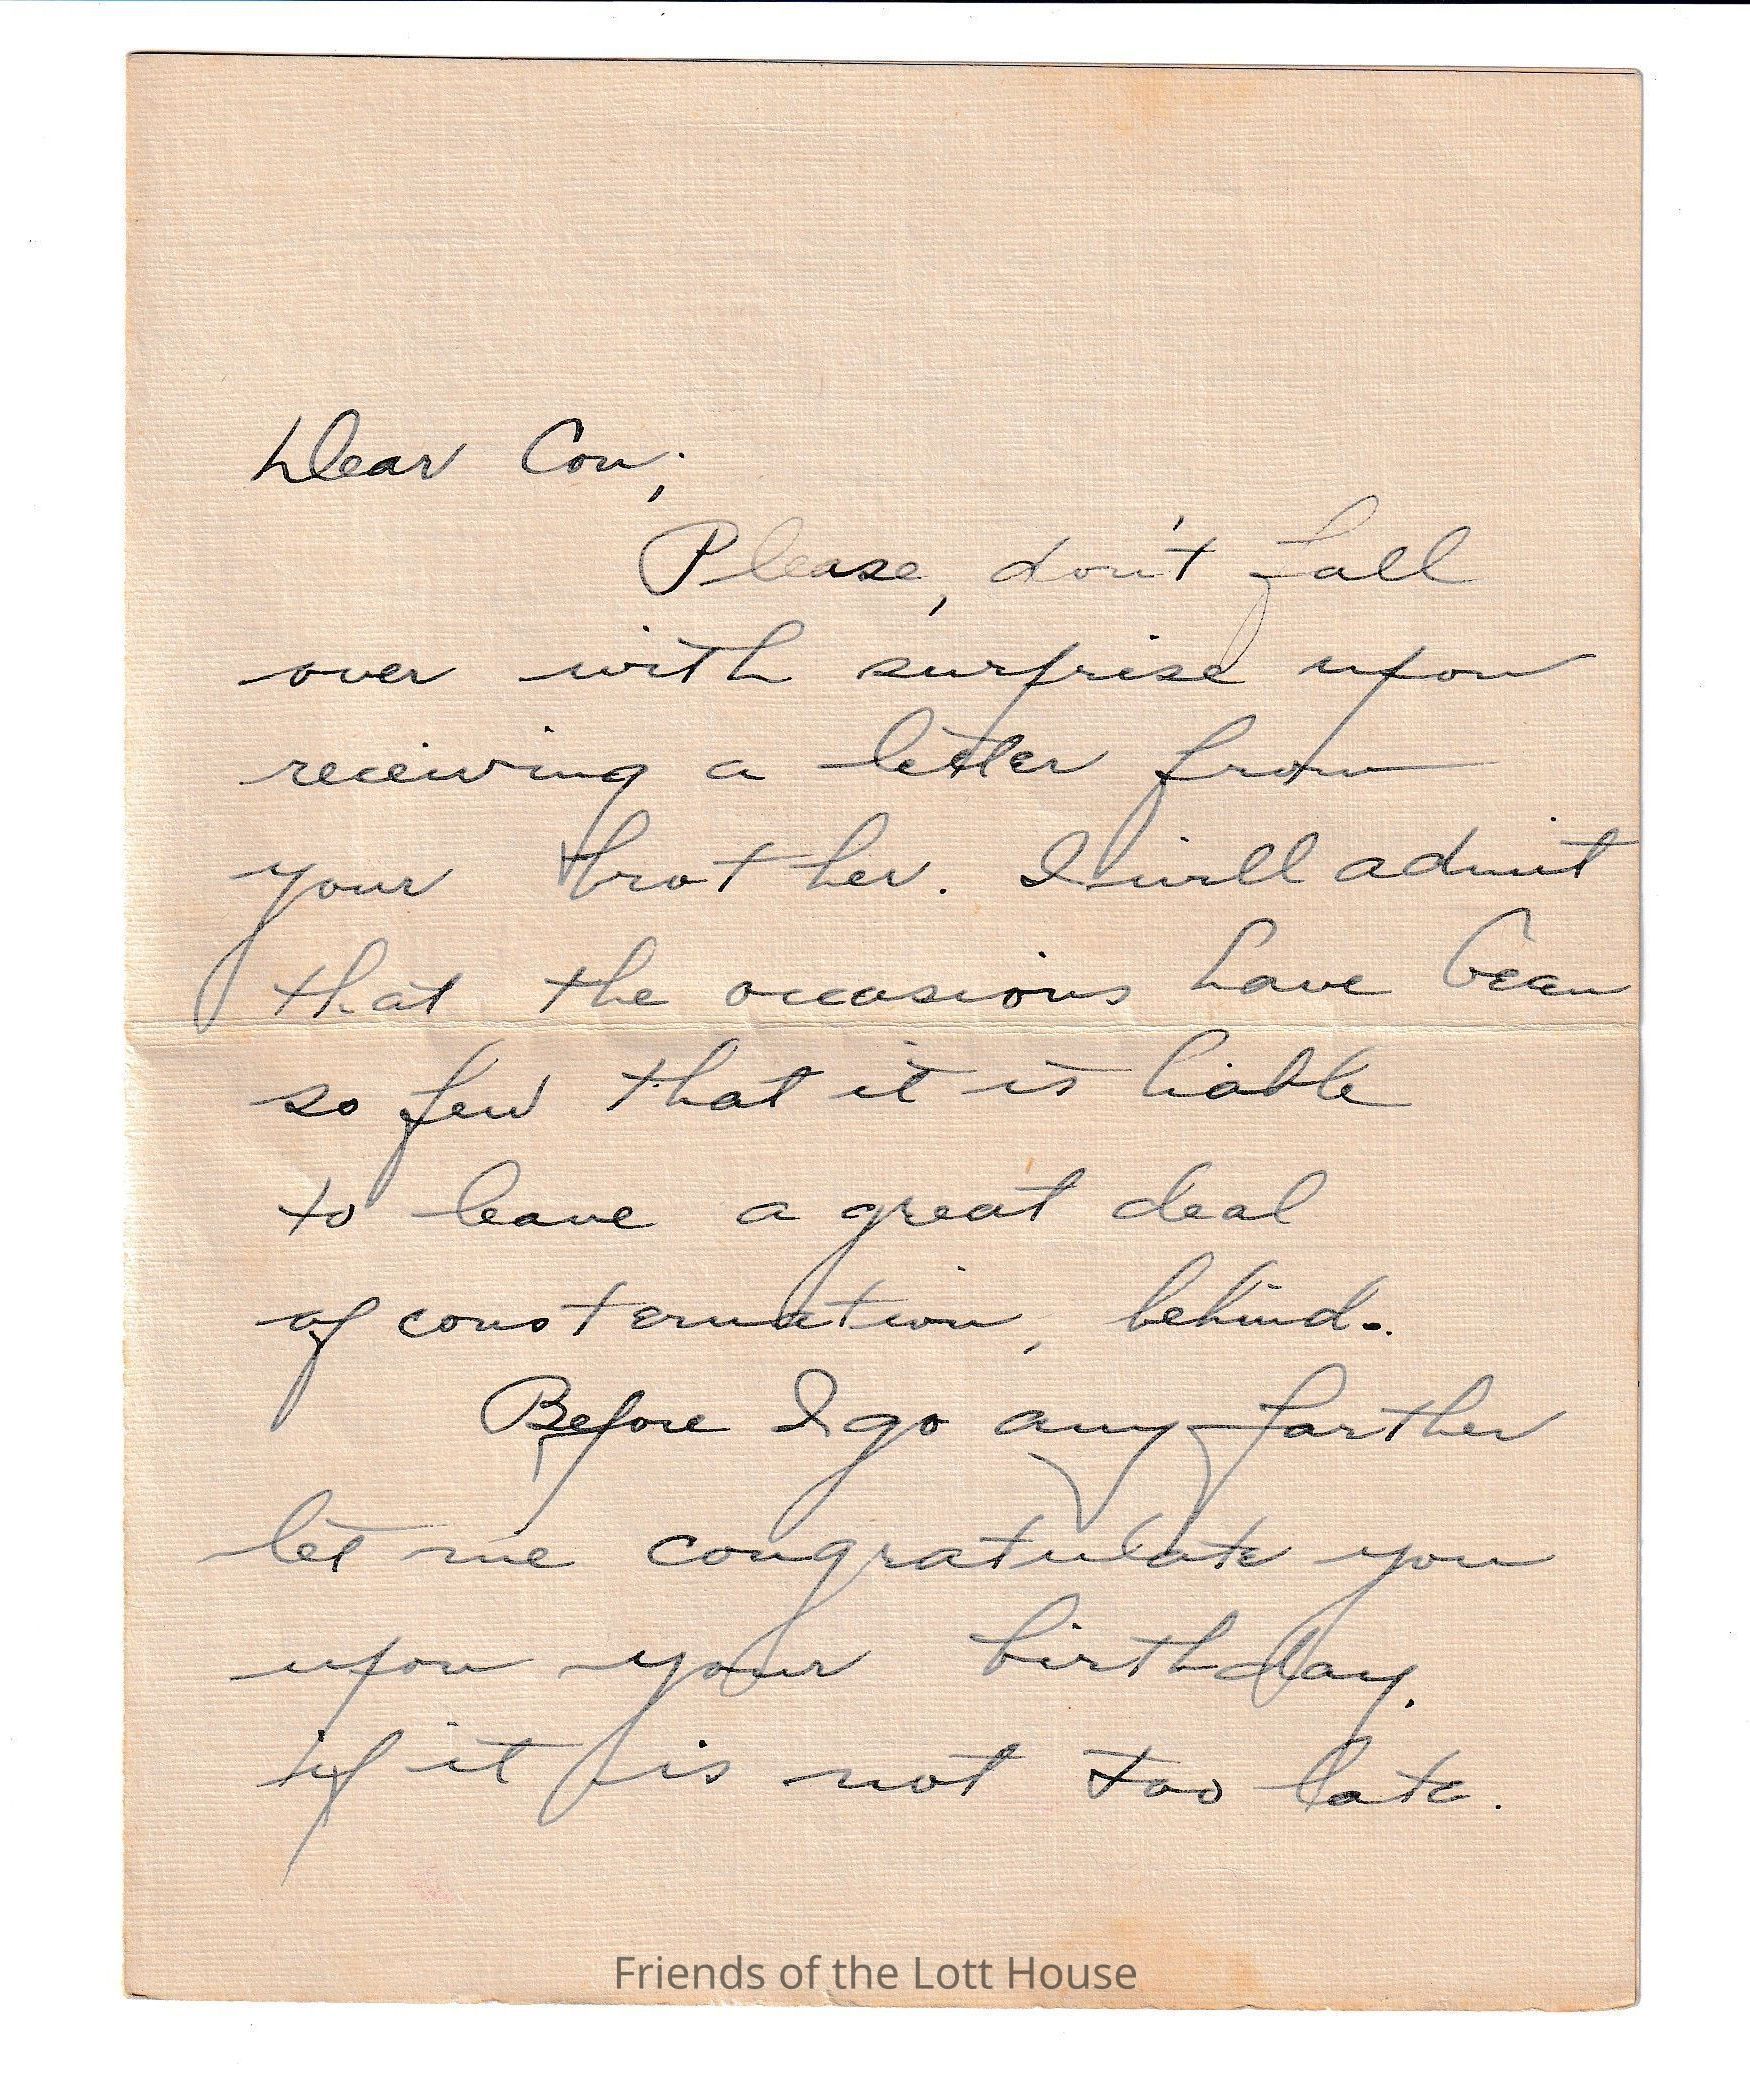 Dear Con;
Please, don't fall
over with surprise upon
receiving a letter from
your brother. I will admit
that the occasions have been
so few that it is liable
to leave a great deal
of consternation, behind.
Before I go any farther
let me congratulate you
upon your birthday,
if it is not too late.
Friends of the Lott House